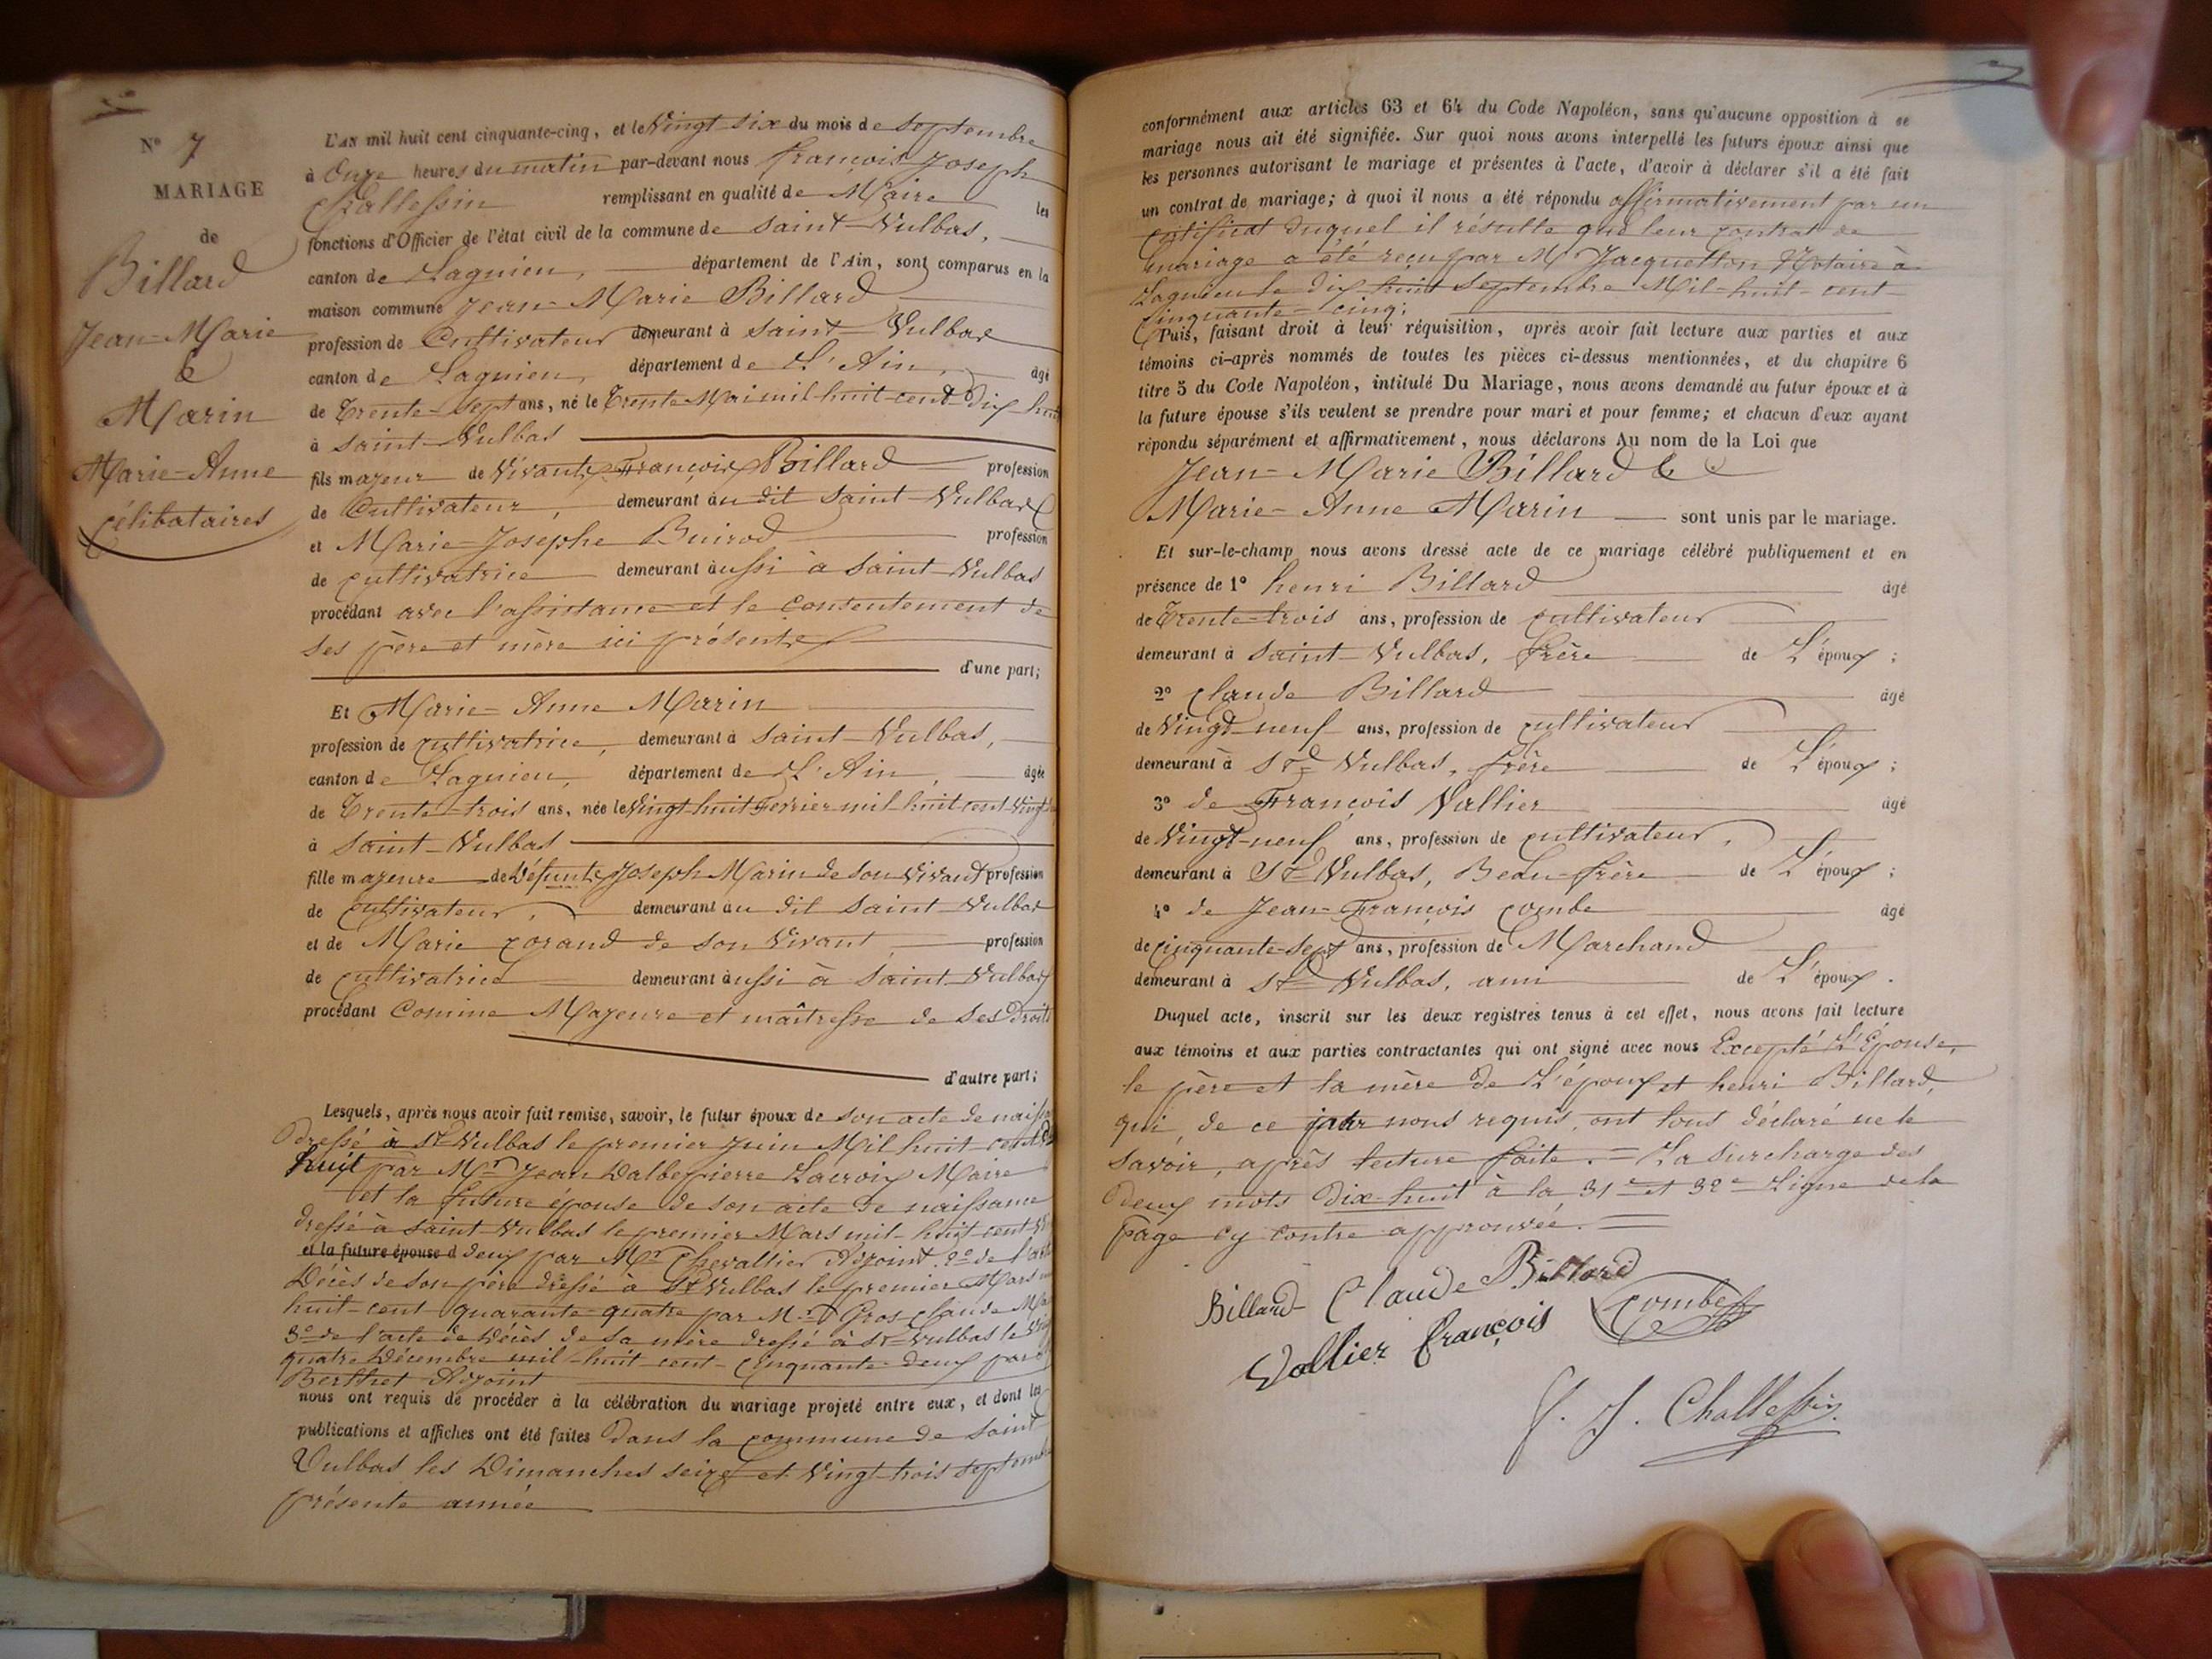 N° 7
MARIAGE
de
Billard
Jean-Marie
&
Marin
Marie-Anne
célibataires
L'AN mil huit cent cinquante-cinq, et le Vingt six du mois de Septembre
à Onze heures du matin par-devant nous françois Joseph
Challessin remplissant en qualité de Maire les
fonctions d'Officier de l'état civil de la commune de Saint-Vulbas,
canton de Lagnieu, département de l'Ain, sont comparus en la
maison commune Jean-Marie Billard
profession de Cultivateur demeurant à Saint-Vulbas
canton de Lagnieu, département de L'Ain, âgé
de Trente-Sept ans, né le Trente Mai mil-huit-cent-dix-huit
à Saint-Vulbas
fils majeur de Vivants François Billard profession
de Cultivateur, demeurant au dit Saint-Vulbas
et Marie-Josephe Buirod profession
de cultivatrice demeurant aussi à Saint-Vulbas
procédant avec l'assistance et le consentement de
ses père et mère ici présents
d'une part;
Et Marie-Anne Marin
profession de cultivatrice, demeurant à Saint-Vulbas,
canton de Lagnieu, département de L'Ain, âgée
de Trente-trois ans, née le Vingt-huit Fevrier mil huit cent Vingt
à Saint-Vulbas
fille majeure de Défunts Joseph Marin de son Vivant profession
de cultivateur, demeurant au dit Saint-Vulbas
et de Marie corand de son Vivant profession
de cultivatrice demeurant aussi à Saint-Vulbas
procédant Comme Majeure et maîtresse de ses Droits
d'autre part;
Lesquels, après nous avoir fait remise, savoir, le futur époux de son acte de
Dressé à St Vulbas le premier Juin Mil huit-cent
huit par Mr Jean Dalbepierre Lacroix Maire
et la future épouse de son acte de naissance
dressé à Saint-Vulbas le premier Mars mil-huit-cent
et la future épouse d deux par Mr Chevallier Adjoint. 2° de l'acte
Décès de son père dressé à St Vulbas le premier Mars
huit-cent quarante-quatre par Mr Gros Claude
3° de l'acte de Décès de sa mère dressé à St-Vulbas le
quatre Décembre mil-huit-cent-cinquante-deux par
Berthet Adjoint
nous ont requis de procéder à la célébration du mariage projeté entre eux, et dont les
publications et affiches ont été faites Dans la commune de Saint
Vulbas les Dimanches seize et Vingt-trois septembre
présente année
conformément aux articles 63 et 64 du Code Napoléon, sans qu'aucune opposition à ce
mariage nous ait été signifiée. Sur quoi nous avons interpellé les futurs époux ainsi que
les personnes autorisant le mariage et présentes à l'acte, d'avoir à déclarer s'il a été fait
un contrat de mariage; à quoi il nous a été répondu affirmativement par un
certificat duquel il résulte que leur contrat de
mariage a été reçu par Me Jacquetton Notaire à
Lagnieu le dix huit Septembre Mil-huit-cent-
cinquante-cinq;
Puis, faisant droit à leur réquisition, après avoir fait lecture aux parties et aux
témoins ci-après nommés de toutes les pièces ci-dessus mentionnées, et du chapitre 6
titre 5 du Code Napoléon, intitulé Du Mariage, nous avons demandé au futur époux et à
la future épouse s'ils veulent se prendre pour mari et pour femme; et chacun d'eux ayant
répondu séparément et affirmativement, nous déclarons Au nom de la Loi que
Jean-Marie Billard &
Marie-Anne Marin sont unis par le mariage.
Et sur-le-champ nous avons dressé acte de ce mariage célébré publiquement et en
présence de 1° henri Billard âgé
de Trente-trois ans, profession de cultivateur
demeurant à Saint-Vulbas, frère de L'époux;
2° Claude Billard âgé
de Vingt-neuf ans, profession de cultivateur
demeurant à St Vulbas, frère de L'époux;
3° de François Vallier âgé
de Vingt-neuf ans, profession de cultivateur,
demeurant à St Vulbas, Beau-frère de L'époux;
4° de Jean-François combe âgé
de cinquante-sept ans, profession de Marchand
demeurant à St Vulbas, ami de L'époux.
Duquel acte, inscrit sur les deux registres tenus à cet effet, nous avons fait lecture
aux témoins et aux parties contractantes qui ont signé avec nous Excepté L'Epouse,
le père et la mère de L'époux et henri Billard,
qui, de ce nous requis, ont tous déclaré ne le
savoir, après lecture faite. = La surcharge des
Deux mots Dix-huit à la 31e et 32e Ligne de la
page cy contre approuvée. =
Billard Claude Billard
Vallier françois Combe
f. J. Challessin